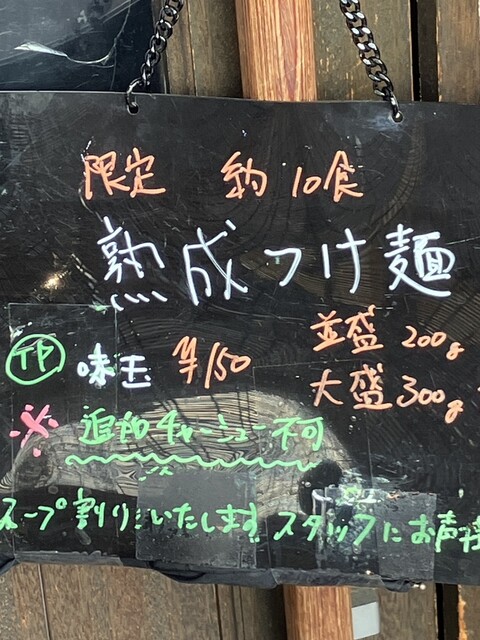 限定 約10食
熟成つけ麺
TP 味玉 ¥150
並盛 200g
大盛 300g
※ 追加チャーシュー不可
スープ割りいたします。スタッフにお声掛